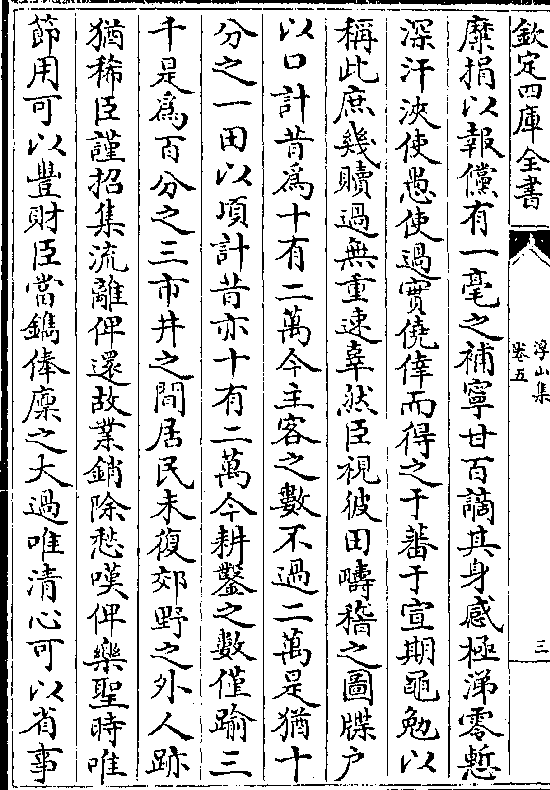 欽定四庫全書
浮山集
卷五
三
糜捐以報儻有一毫之補寧甘百謫其身感極涕零慙
深汗浹使愚使過實僥倖而得之于蕃于宣期黽勉以
稱此庶幾贖過無重速辜然臣視彼田疇稽之圖牒户
以口計昔為十有二萬今主客之數不過二萬是猶十
分之一田以頃計昔亦十有二萬今耕鑿之數僅踰三
千是為百分之三市井之間居民未復郊野之外人跡
猶稀臣謹招集流離俾還故業銷除愁嘆俾樂聖時唯
節用可以豐財臣當鐫俸廩之大過唯清心可以省事